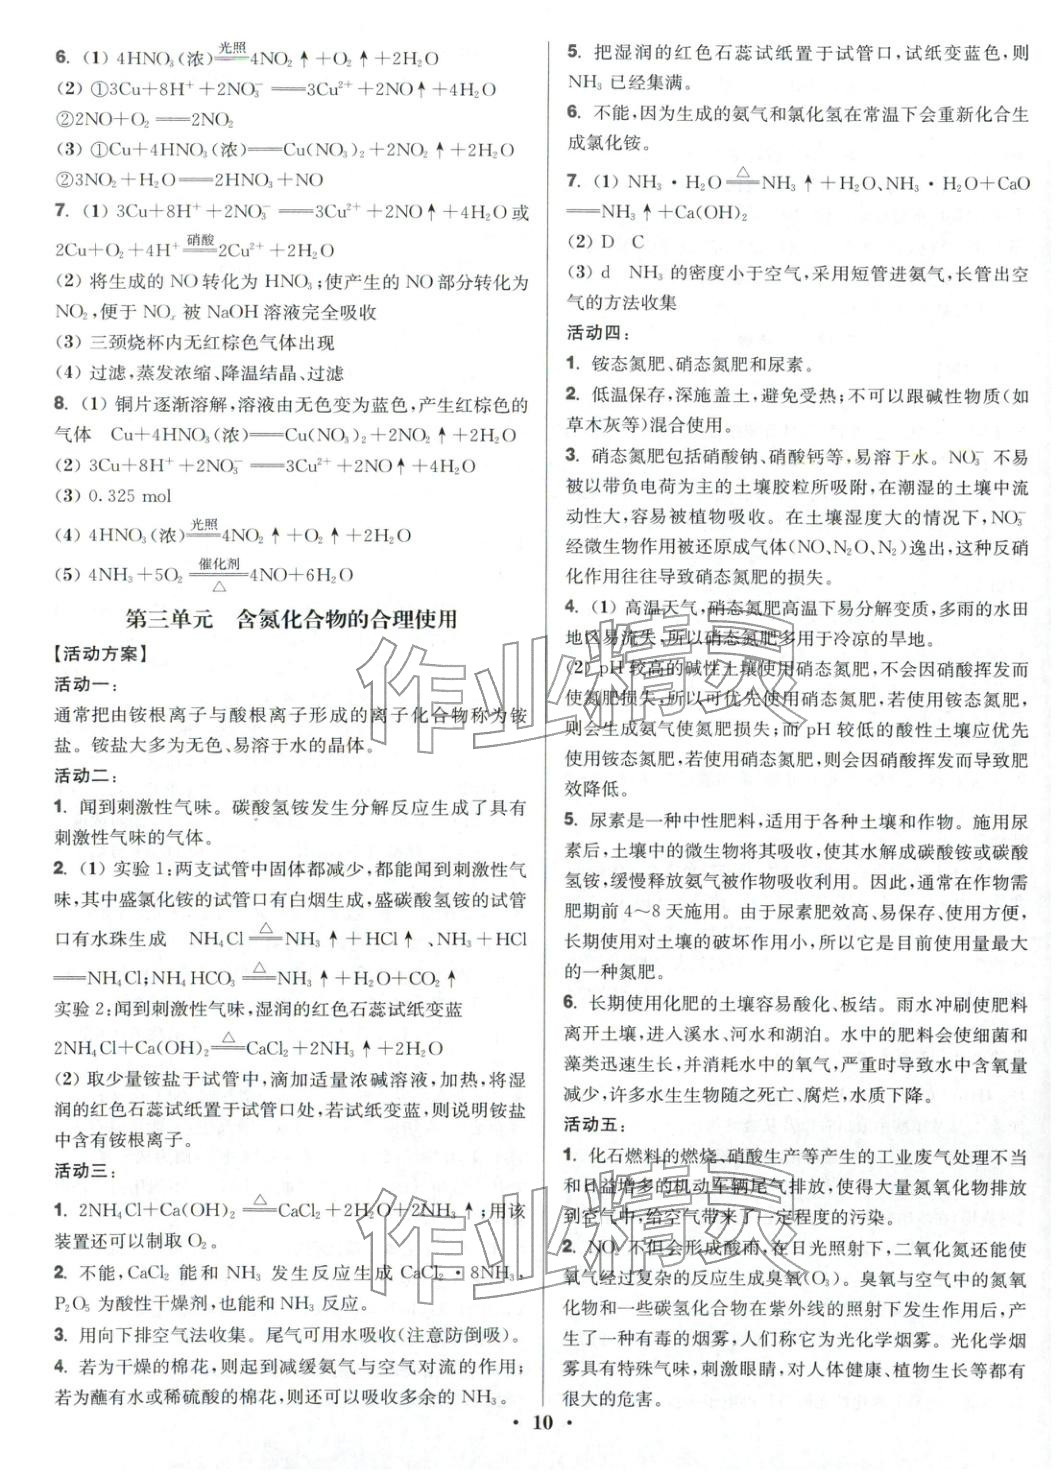 6. (1) 4HNO₃(浓)══光照══4NO₂↑+O₂↑+2H₂O
(2) ①3Cu+8H⁺+2NO₃⁻══3Cu²⁺+2NO↑+4H₂O
②2NO+O₂══2NO₂
(3) ①Cu+4HNO₃(浓)══Cu(NO₃)₂+2NO₂↑+2H₂O
②3NO₂+H₂O══2HNO₃+NO
7. (1) 3Cu+8H⁺+2NO₃⁻══3Cu²⁺+2NO↑+4H₂O或
2Cu+O₂+4H⁺══硝酸══2Cu²⁺+2H₂O
(2) 将生成的NO转化为HNO₃;使产生的NO部分转化为
NO₂,便于NOₓ被NaOH溶液完全吸收
(3) 三颈烧杯内无红棕色气体出现
(4) 过滤,蒸发浓缩、降温结晶、过滤
8. (1) 铜片逐渐溶解,溶液由无色变为蓝色,产生红棕色的
气体 Cu+4HNO₃(浓)══Cu(NO₃)₂+2NO₂↑+2H₂O
(2) 3Cu+8H⁺+2NO₃⁻══3Cu²⁺+2NO↑+4H₂O
(3) 0.325 mol
(4) 4HNO₃(浓)══光照══4NO₂↑+O₂↑+2H₂O
(5) 4NH₃+5O₂══催化剂/△══4NO+6H₂O
第三单元 含氮化合物的合理使用
【活动方案】
活动一:
通常把由铵根离子与酸根离子形成的离子化合物称为铵
盐。铵盐大多为无色、易溶于水的晶体。
活动二:
1. 闻到刺激性气味。碳酸氢铵发生分解反应生成了具有
刺激性气味的气体。
2. (1) 实验1:两支试管中固体都减少,都能闻到刺激性气
味,其中盛氯化铵的试管口有白烟生成,盛碳酸氢铵的试管
口有水珠生成 NH₄Cl══△══NH₃↑+HCl↑、NH₃+HCl
══NH₄Cl;NH₄HCO₃══△══NH₃↑+H₂O+CO₂↑
实验2:闻到刺激性气味,湿润的红色石蕊试纸变蓝
2NH₄Cl+Ca(OH)₂══△══CaCl₂+2NH₃↑+2H₂O
(2) 取少量铵盐于试管中,滴加适量浓碱溶液,加热,将湿
润的红色石蕊试纸置于试管口处,若试纸变蓝,则说明铵盐
中含有铵根离子。
活动三:
1. 2NH₄Cl+Ca(OH)₂══△══CaCl₂+2H₂O+2NH₃↑;用该
装置还可以制取O₂。
2. 不能,CaCl₂能和NH₃发生反应生成CaCl₂·8NH₃,
P₂O₅为酸性干燥剂,也能和NH₃反应。
3. 用向下排空气法收集。尾气可用水吸收(注意防倒吸)。
4. 若为干燥的棉花,则起到减缓氨气与空气对流的作用;
若为蘸有水或稀硫酸的棉花,则还可以吸收多余的NH₃。
5. 把湿润的红色石蕊试纸置于试管口,试纸变蓝色,则
NH₃已经集满。
6. 不能,因为生成的氨气和氯化氢在常温下会重新化合生
成氯化铵。
7. (1) NH₃·H₂O══△══NH₃↑+H₂O、NH₃·H₂O+CaO
══NH₃↑+Ca(OH)₂
(2) D C
(3) d NH₃的密度小于空气,采用短管进氨气,长管出空
气的方法收集
活动四:
1. 铵态氮肥、硝态氮肥和尿素。
2. 低温保存,深施盖土,避免受热;不可以跟碱性物质(如
草木灰等)混合使用。
3. 硝态氮肥包括硝酸钠、硝酸钙等,易溶于水。NO₃⁻不易
被以带负电荷为主的土壤胶粒所吸附,在潮湿的土壤中流
动性大,容易被植物吸收。在土壤湿度大的情况下,NO₃⁻
经微生物作用被还原成气体(NO、N₂O、N₂)逸出,这种反硝
化作用往往导致硝态氮肥的损失。
4. (1) 高温天气,硝态氮肥高温下易分解变质,多雨的水田
地区易流失,所以硝态氮肥多用于冷凉的旱地。
(2) pH较高的碱性土壤使用硝态氮肥,不会因硝酸挥发而
使氮肥损失,所以可优先使用硝态氮肥,若使用铵态氮肥,
则会生成氨气使氮肥损失;而pH较低的酸性土壤应优先
使用铵态氮肥,若使用硝态氮肥,则会因硝酸挥发而导致肥
效降低。
5. 尿素是一种中性肥料,适用于各种土壤和作物。施用尿
素后,土壤中的微生物将其吸收,使其水解成碳酸铵或碳酸
氢铵,缓慢释放氨气被作物吸收利用。因此,通常在作物需
肥期前4~8天施用。由于尿素肥效高、易保存、使用方便,
长期使用对土壤的破坏作用小,所以它是目前使用量最大
的一种氮肥。
6. 长期使用化肥的土壤容易酸化、板结。雨水冲刷使肥料
离开土壤,进入溪水、河水和湖泊。水中的肥料会使细菌和
藻类迅速生长,并消耗水中的氧气,严重时导致水中含氧量
减少,许多水生生物随之死亡、腐烂,水质下降。
活动五:
1. 化石燃料的燃烧、硝酸生产等产生的工业废气处理不当
和日益增多的机动车辆尾气排放,使得大量氮氧化物排放
到空气中,给空气带来了一定程度的污染。
2. NO₂不但会形成酸雨,在日光照射下,二氧化氮还能使
氧气经过复杂的反应生成臭氧(O₃)。臭氧与空气中的氮氧
化物和一些碳氢化合物在紫外线的照射下发生作用后,产
生了一种有毒的烟雾,人们称它为光化学烟雾。光化学烟
雾具有特殊气味,刺激眼睛,对人体健康、植物生长等都有
很大的危害。
· 10 ·
作业精灵
作业精灵